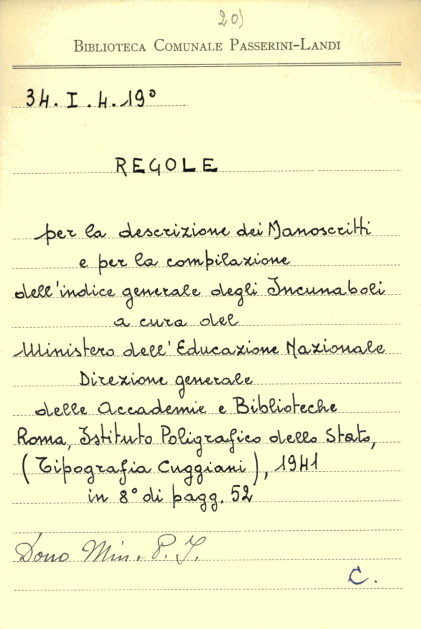 20)
BIBLIOTECA COMUNALE PASSERINI-LANDI
34. I. 4. 19°
REGOLE
per la descrizione dei Manoscritti
e per la compilazione
dell'indice generale degli Incunaboli
a cura del
Ministero dell'Educazione Nazionale
Direzione generale
delle Accademie e Biblioteche
Roma, Istituto Poligrafico dello Stato,
(Tipografia Cuggiani), 1941
in 8° di pagg. 52
Dono Min. P. I.
C.